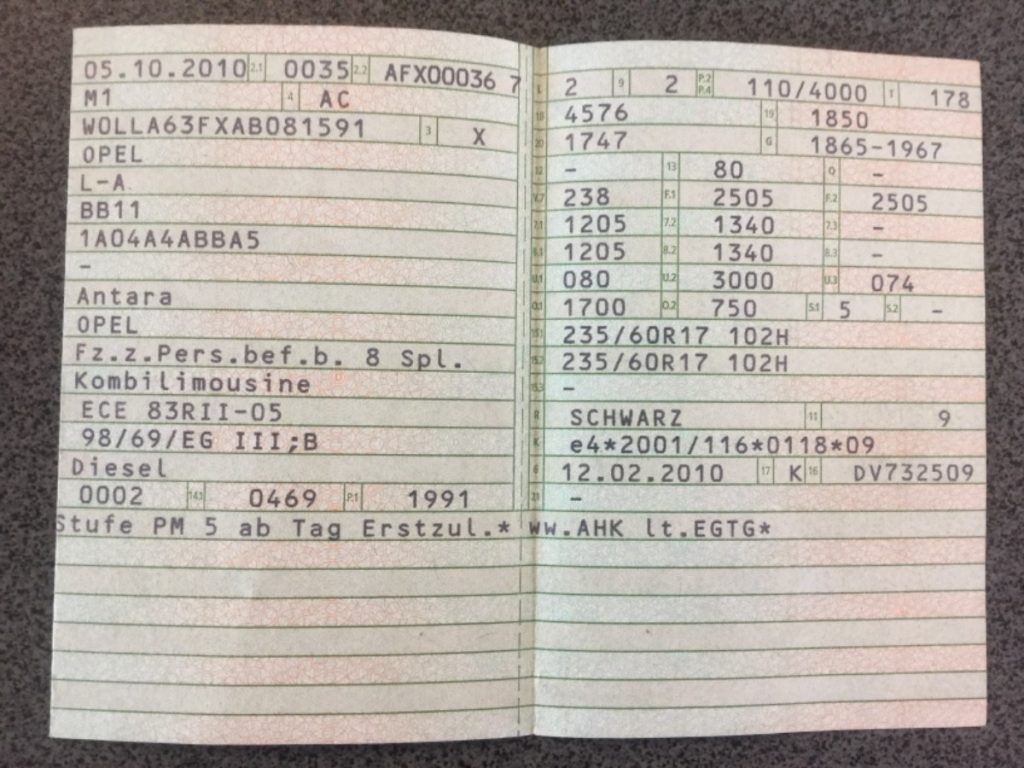 05.10.2010 2.1 0035 2.2 AFX00036 7
M1 4 AC
WOLLA63FXAB081591 3 X
OPEL
L-A
BB11
1A04A4ABBA5
-
Antara
OPEL
Fz.z.Pers.bef.b. 8 Spl.
Kombilimousine
ECE 83RII-05
98/69/EG III;B
Diesel
0002 14.1 0469 P.1 1991
Stufe PM 5 ab Tag Erstzul.* ww.AHK lt.EGTG*
L 2 9 2 P.2 P.4 110/4000 T 178
18 4576 19 1850
20 1747 G 1865-1967
12 - 13 80 Q -
V.7 238 F.1 2505 F.2 2505
7.1 1205 7.2 1340 7.3 -
8.1 1205 8.2 1340 8.3 -
U.1 080 U.2 3000 U.3 074
O.1 1700 O.2 750 S.1 5 S.2 -
15.1 235/60R17 102H
15.2 235/60R17 102H
15.3 -
R SCHWARZ 11 9
K e4*2001/116*0118*09
6 12.02.2010 17 K 16 DV732509
21 -